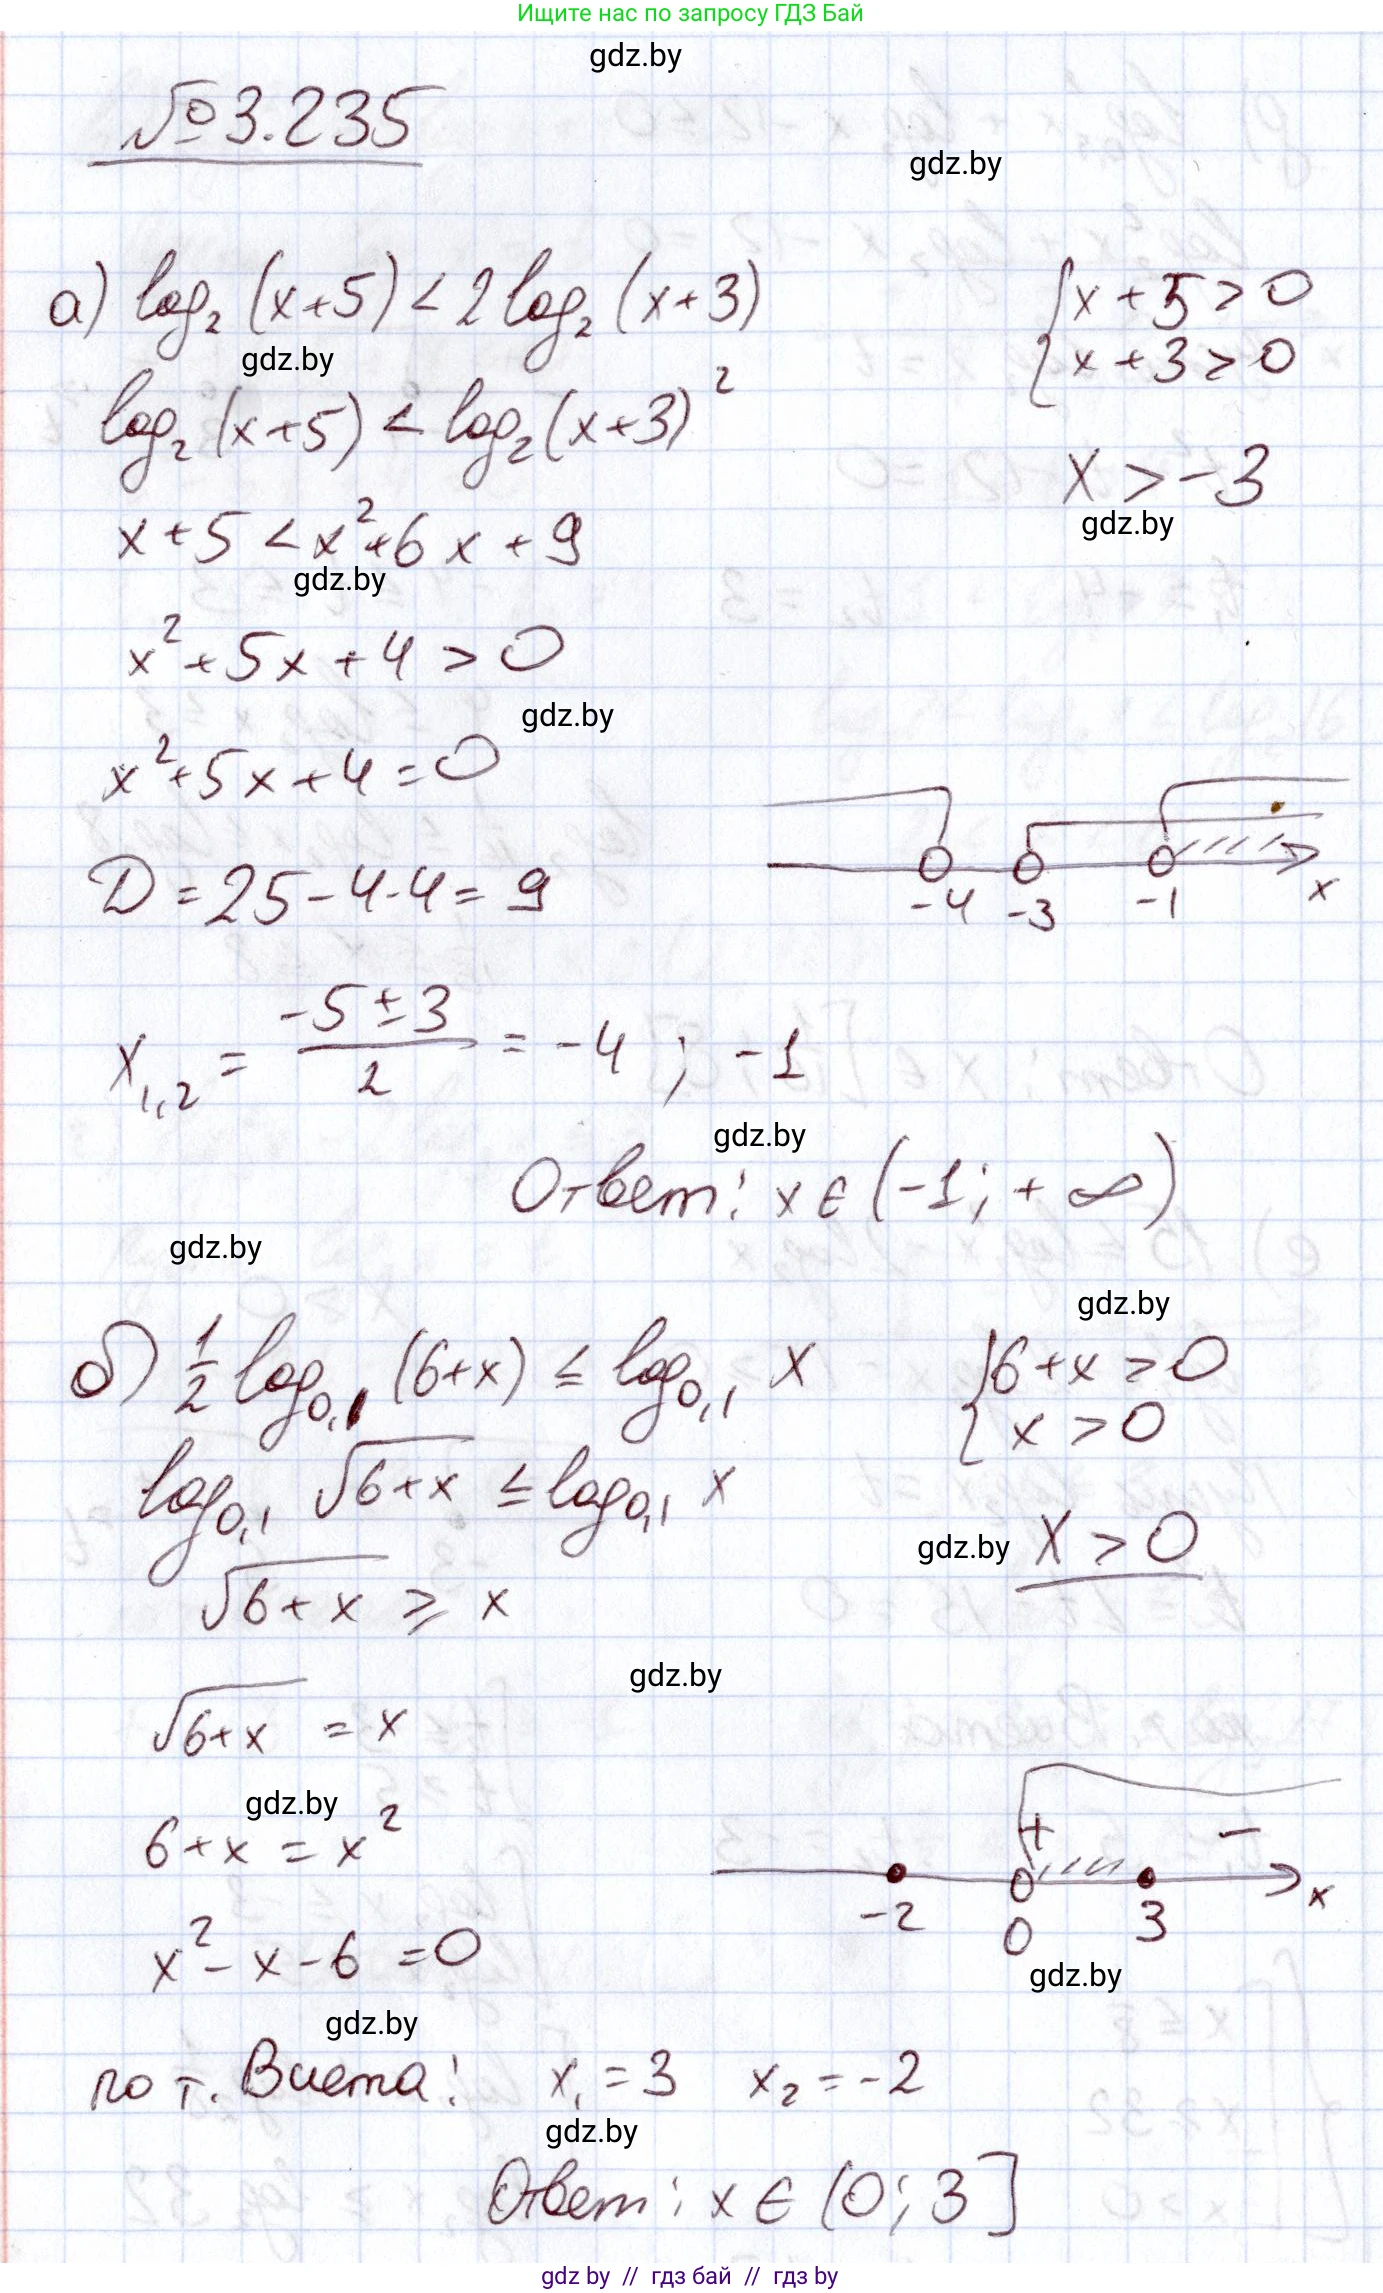 Ищите нас по запросу ГДЗ Бай
gdz.by
№3.235
gdz.by
а) log₂ (x+5) < 2 log₂ (x+3)
{ x + 5 > 0
{ x + 3 > 0
gdz.by
log₂ (x+5) < log₂ (x+3)²
x > -3
gdz.by
x + 5 < x² + 6x + 9
gdz.by
x² + 5x + 4 > 0
gdz.by
x² + 5x + 4 = 0
D = 25 - 4·4 = 9
-4 -3 -1 x
x₁,₂ = (-5 ± 3)/2 = -4 ; -1
gdz.by
Ответ: x ∈ (-1; +∞)
gdz.by
gdz.by
б) 1/2 log₀,₁ (6+x) ≤ log₀,₁ x
{ 6 + x > 0
{ x > 0
log₀,₁ √(6+x) ≤ log₀,₁ x
gdz.by x > 0
√(6+x) ≥ x
gdz.by
√(6+x) = x
gdz.by
6 + x = x²
+ -
-2 0 3 x
x² - x - 6 = 0
gdz.by
gdz.by
по т. Виета: x₁ = 3 x₂ = -2
gdz.by
Ответ: x ∈ (0; 3]
gdz by // гдз бай // гдз by